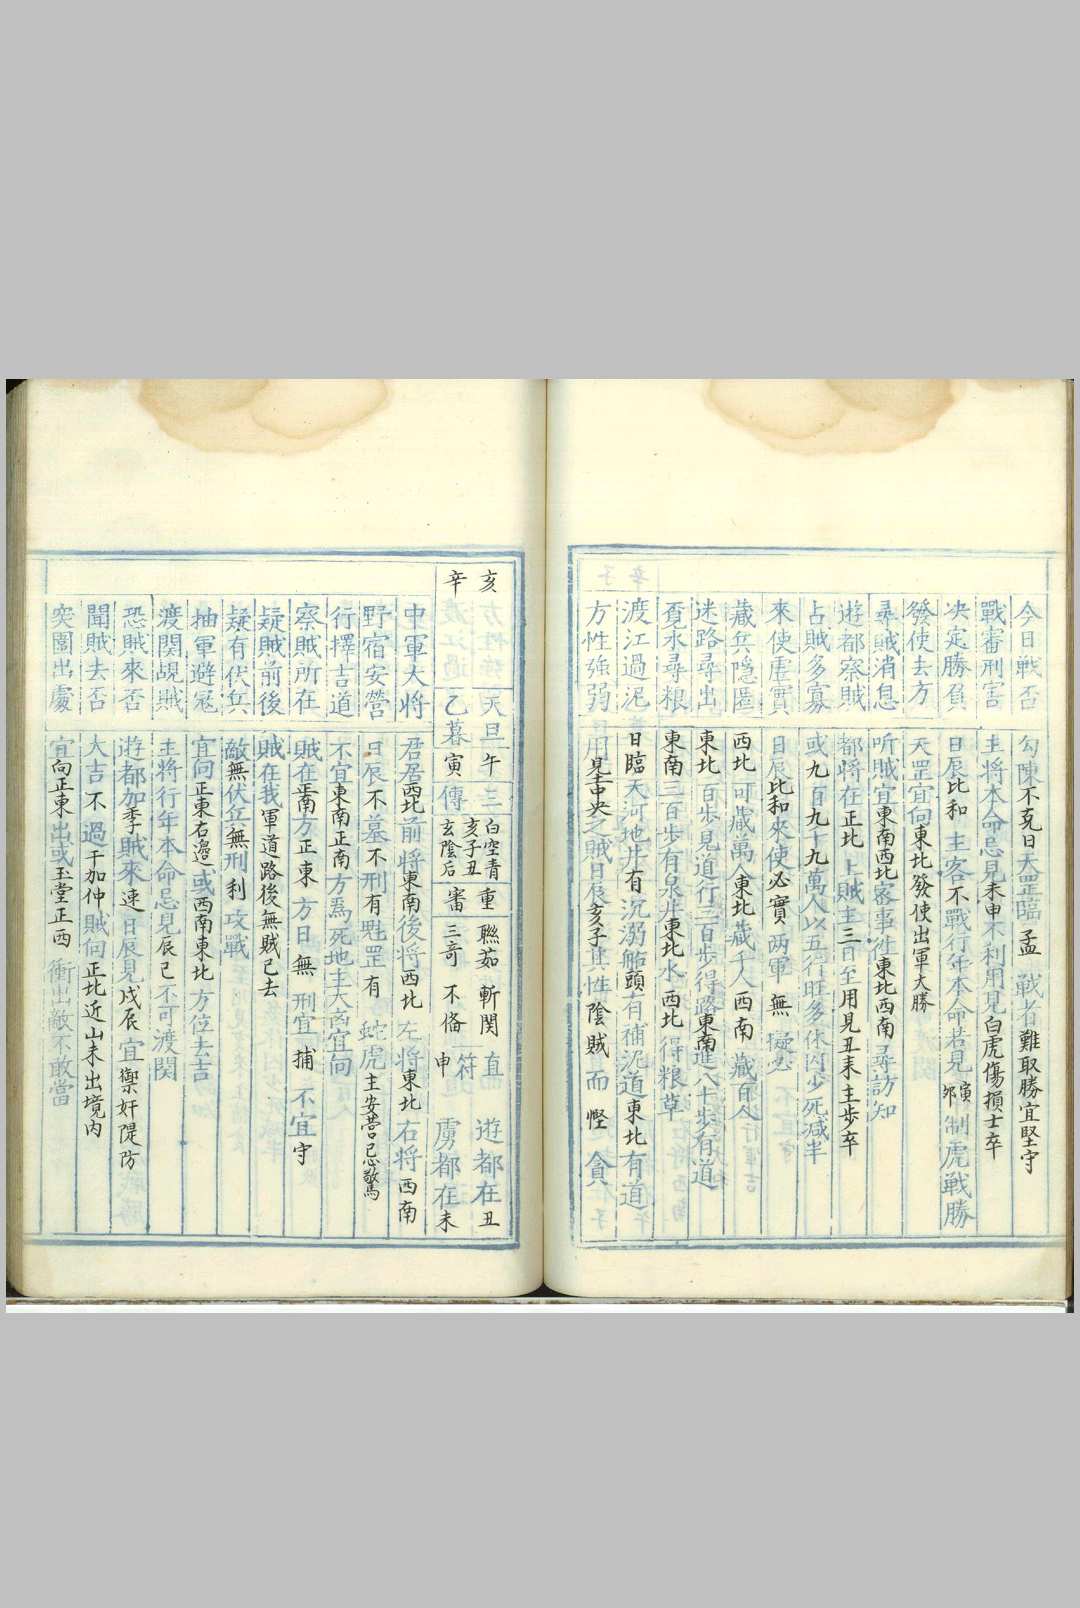 今日戰否 勾陳不克日大𠀋正臨孟 戰者難取勝宜堅守
戰審刑害 主將本命忌見未申不利用見白虎傷損士卒
決定勝負 日辰比和 主客不戰行年本命若見寅卯制虎戰勝
發使去方 天罡宜向東北發使出軍大勝
尋賊消息 听賊宜東南西北密事進東北西南尋訪知
遊都察賊 都將在正北 上賊主三日至用見丑未主步卒
占賊多寡 或九百九十九萬人以五行旺多休囚少死減半
來使虛實 日辰比和來使必實 两軍無疑
藏兵隐匿 西北可藏萬人東北藏千人西南藏百人
迷路尋出 東北一百步見道行三百步得路東南進八十步有道
覓水尋粮 東南三百步有泉井東北水 西北得粮草
渡江過泥 日臨天河地井有沉溺船頭有補泥道東北有道
方性強弱 用見中央之賊日辰亥子其性陰賊而慳貪
亥 天旦午 三白空青 重 聯茹 斬関 遊都在丑
辛 乙暮寅 傳 亥子丑 玄陰后 審 三奇 不俻 直符申 虜都在未
中軍大将 君居西北前将東南後将西北左将東北右将西南
野宿安營 日辰不墓不刑有魁罡有蛇虎主安營忌驚
行擇吉道 不宜東南正南方為死地主大凶宜向
察賊所在 賊在正南方正東方日無刑宜捕不宜守
疑賊前後 賊在我軍道路後無賊已去
疑有伏兵 敵無伏兵無刑利攻戰
抽軍避冦 宜向正東右邉或西南東北方位去吉
渡関覘賊 主将行年本命忌見辰巳不可渡関
恐賊來否 遊都加季賊來速日辰見戌辰宜禦奸隄防
聞賊去否 大吉不過于加仲賊向正北近山未出境内
突圍出處 宜向正東出或玉堂正西衝出敵不敢當